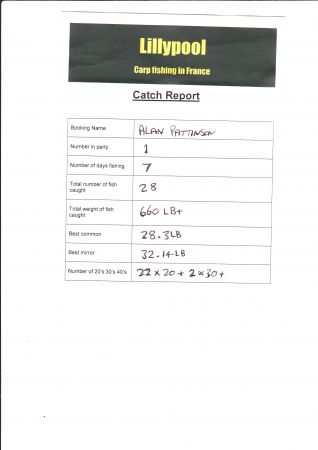 Lillypool
Carp fishing in France
Catch Report
Booking Name ALAN PATTINSON
Number in party 1
Number of days fishing 7
Total number of fish
caught 28
Total weight of fish
caught 660 LB+
Best common 28.3LB
Best mirror 32.14LB
Number of 20's 30's 40's 22 x 20+ 2 x 30+